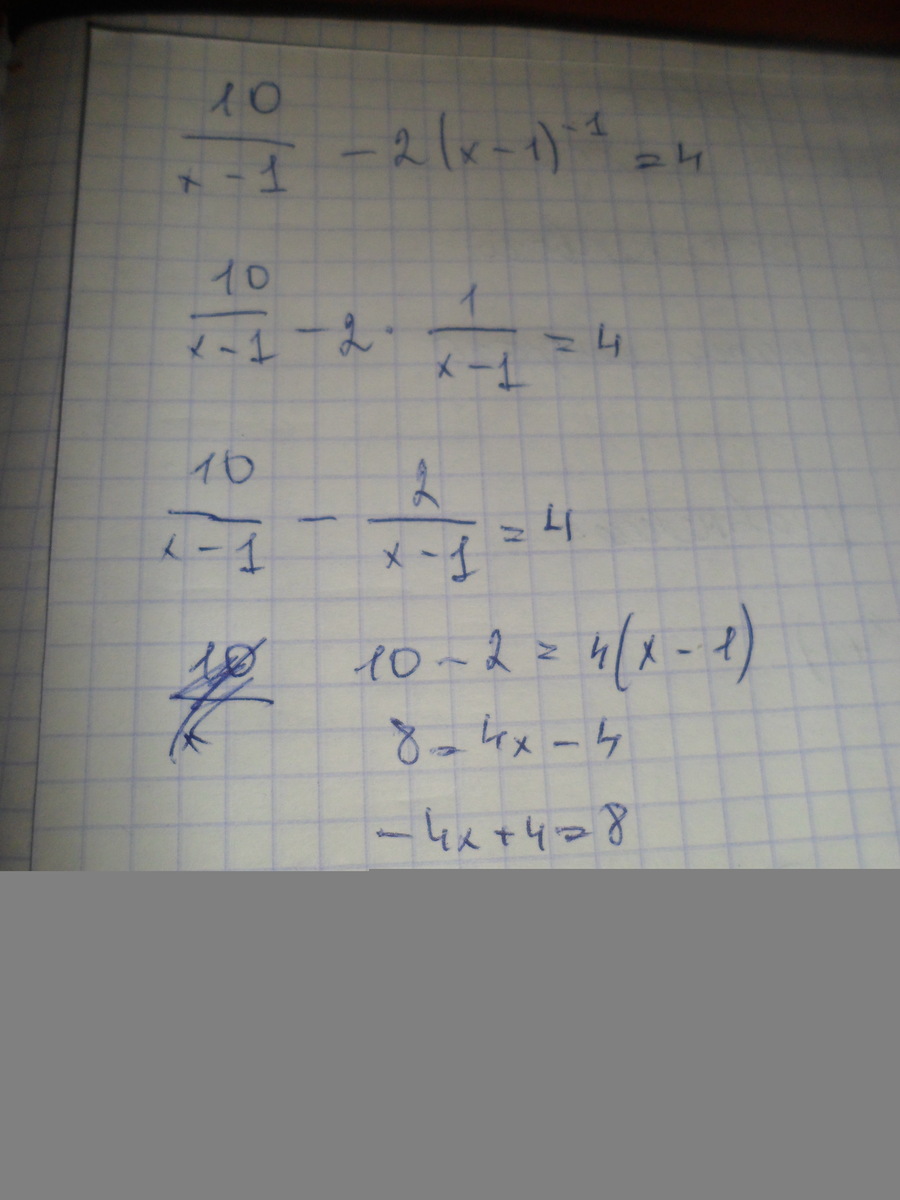 10/(x-1) - 2(x-1)^-1 = 4
10/(x-1) - 2 · 1/(x-1) = 4
10/(x-1) - 2/(x-1) = 4
10 - 2 = 4(x - 1)
8 = 4x - 4
-4x + 4 = 8